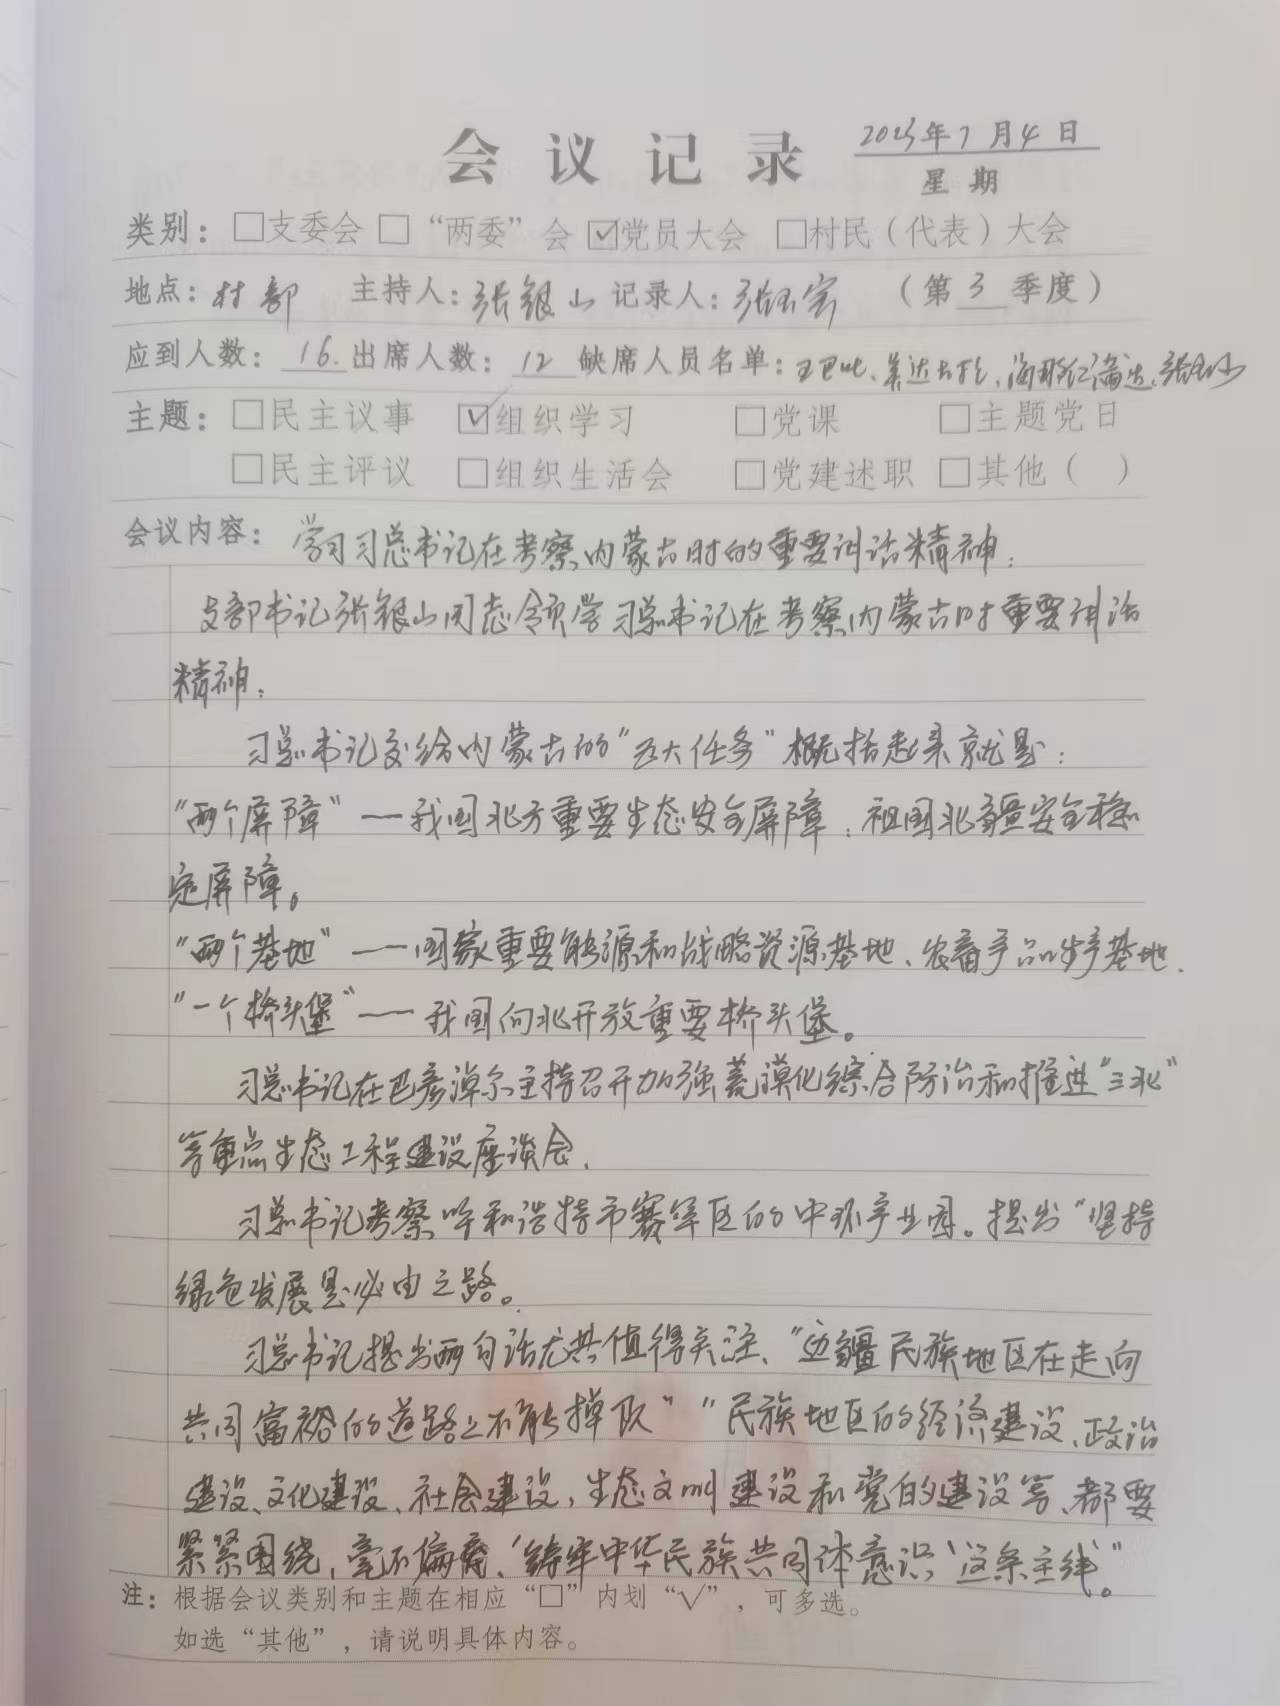 会议记录 2023年7月4日
星期
类别：□支委会 □“两委”会 ☑党员大会 □村民（代表）大会
地点：村部 主持人：张银山 记录人：张玉宝 （第3季度）
应到人数：16. 出席人数：12 缺席人员名单：
主题：□民主议事 ☑组织学习 □党课 □主题党日
□民主评议 □组织生活会 □党建述职 □其他（ ）
会议内容：学习习总书记在考察内蒙古时的重要讲话精神：
支部书记张银山同志领学习总书记在考察内蒙古时重要讲话
精神：
习总书记交给内蒙古的“五大任务”概括起来就是：
“两个屏障”——我国北方重要生态安全屏障、祖国北疆安全稳
定屏障。
“两个基地”——国家重要能源和战略资源基地、农畜产品生产基地.
“一个桥头堡”——我国向北开放重要桥头堡。
习总书记在巴彦淖尔主持召开加强荒漠化综合防治和推进“三北”
等重点生态工程建设座谈会.
习总书记考察呼和浩特市赛罕区的中环产业园。提出“坚持
绿色发展是必由之路。
习总书记提出两句话尤其值得关注、“边疆民族地区在走向
共同富裕的道路上不能掉队”“民族地区的经济建设、政治
建设、文化建设、社会建设，生态文明建设和党的建设等、都要
紧紧围绕，毫不偏离、‘铸牢中华民族共同体意识’这条主线”。
注：根据会议类别和主题在相应“□”内划“√”，可多选。
如选“其他”，请说明具体内容。